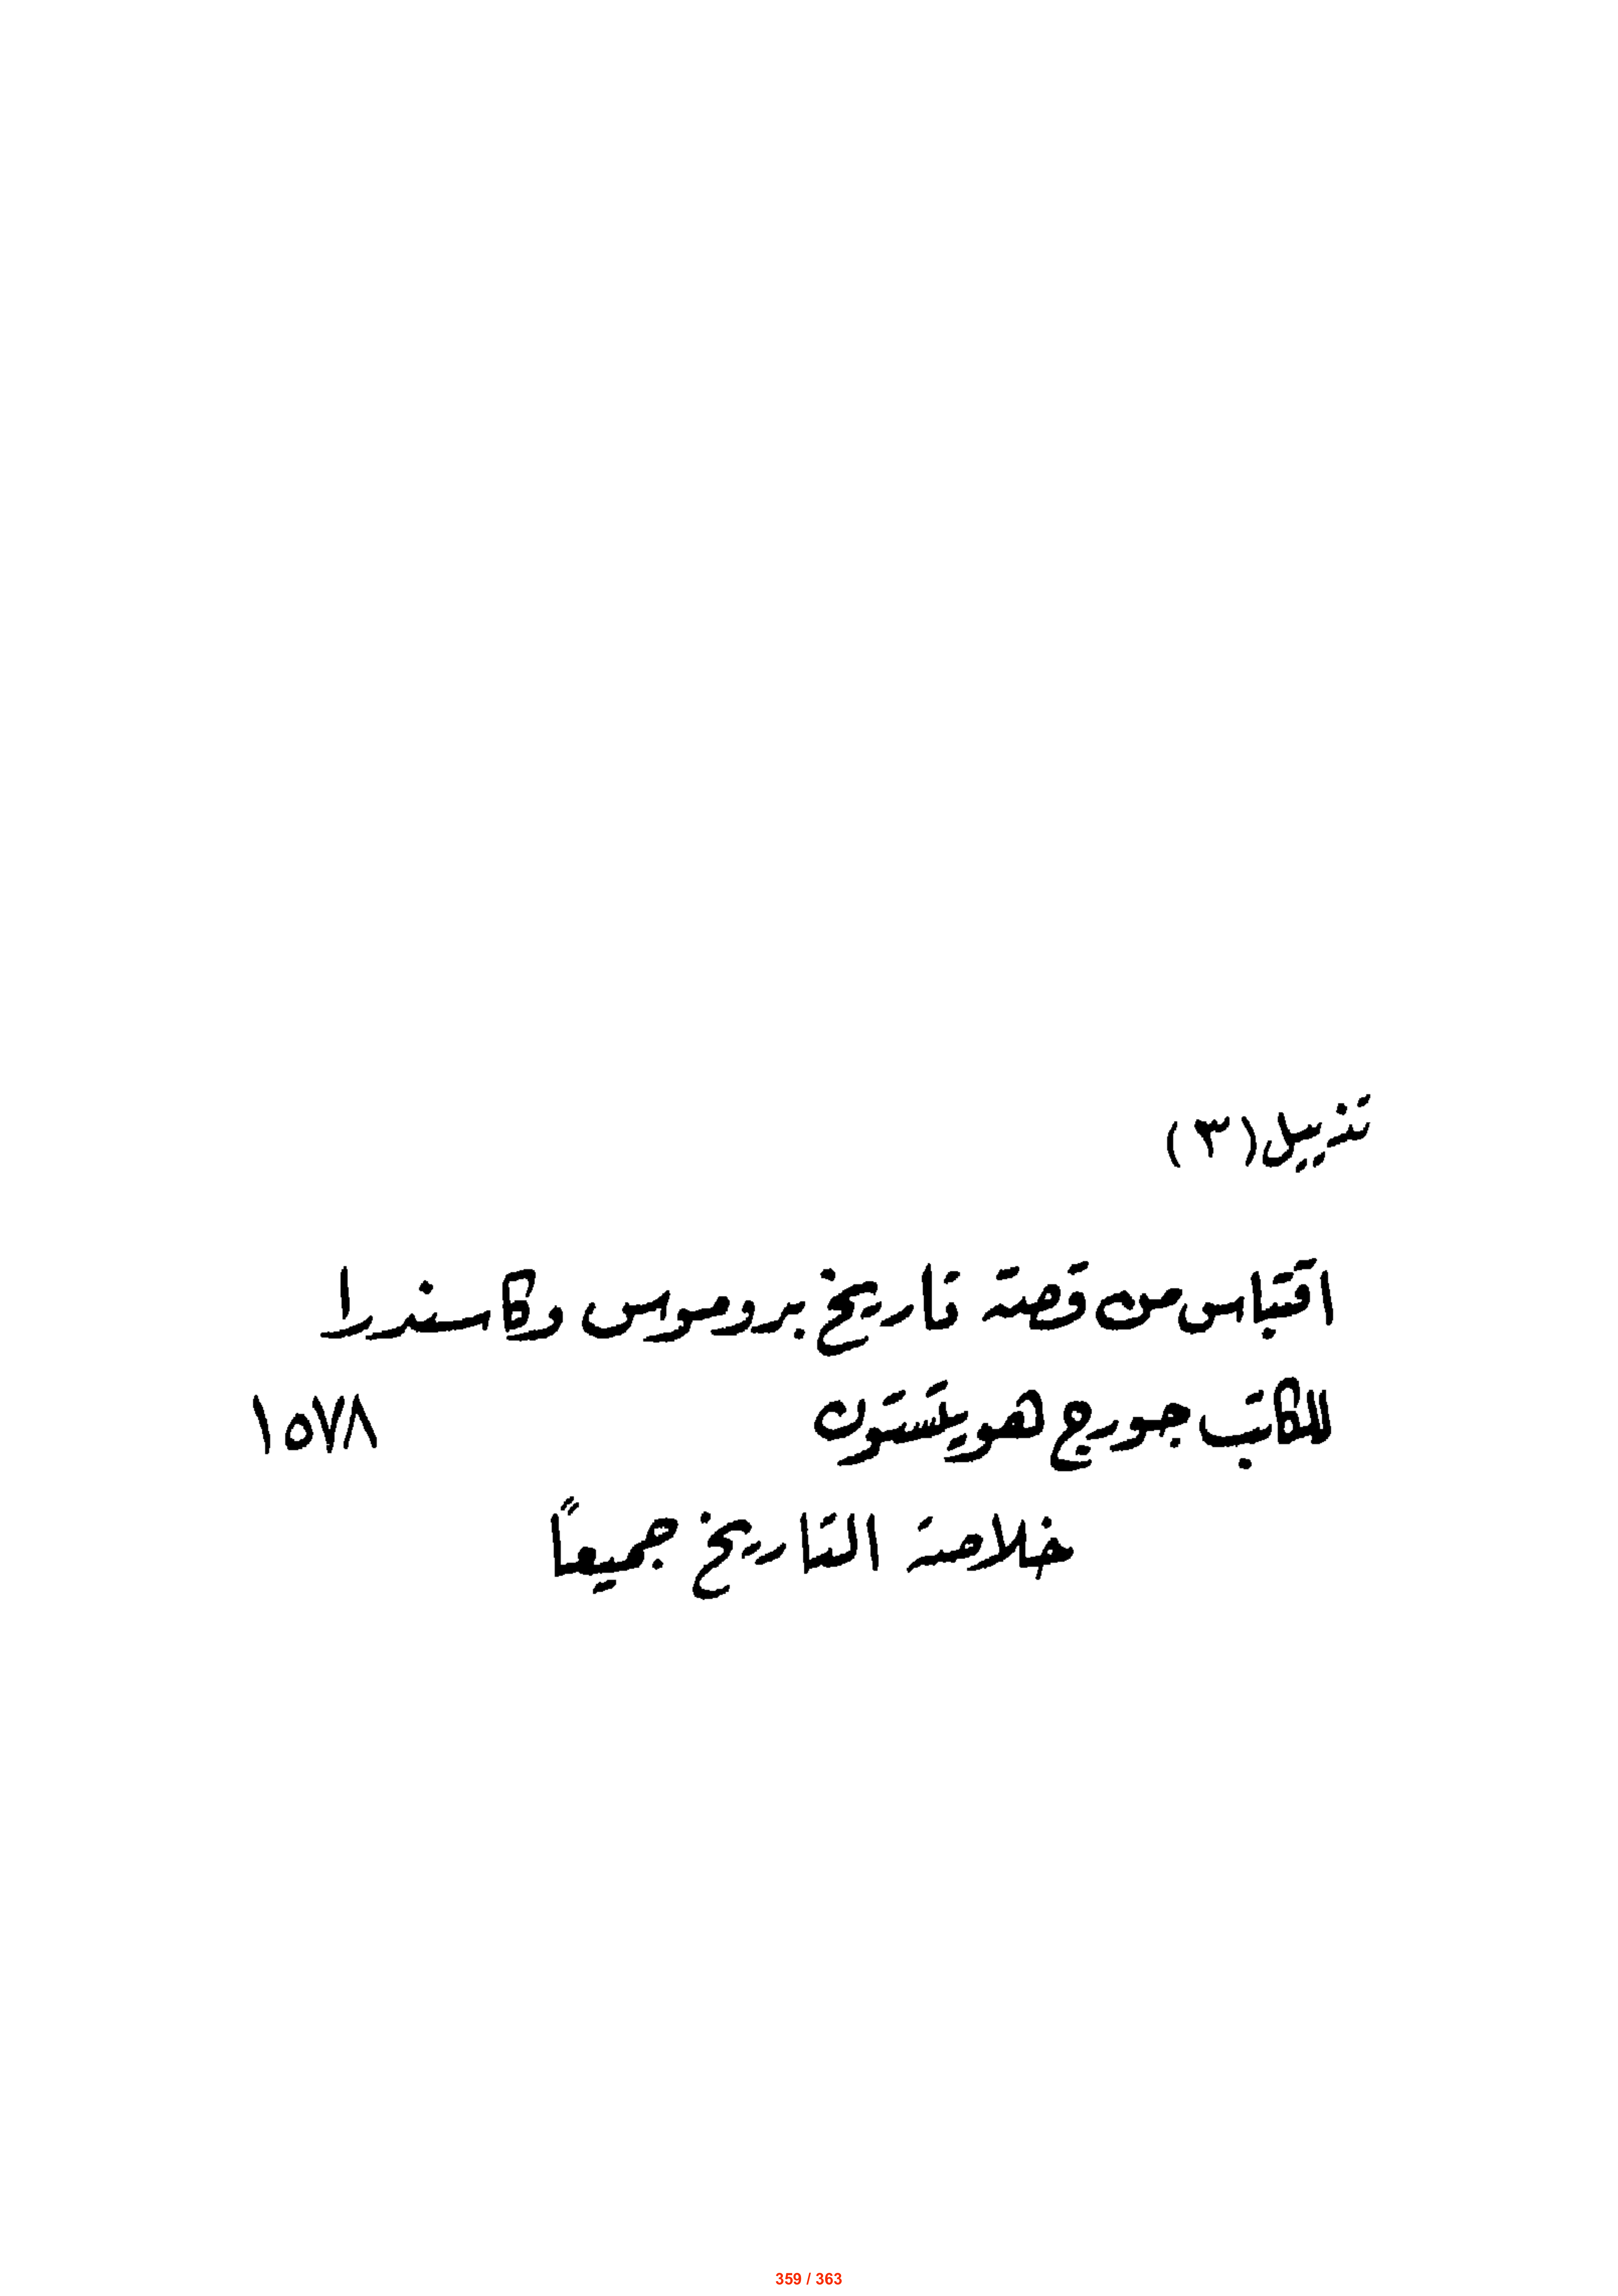 تذييل (٣)
اقتباس من قصة تاريخ بروموس وكاسندرا
للكاتب جورج هويتستون ١٥٧٨
خلاصة التاريخ جميعاً
359 / 363